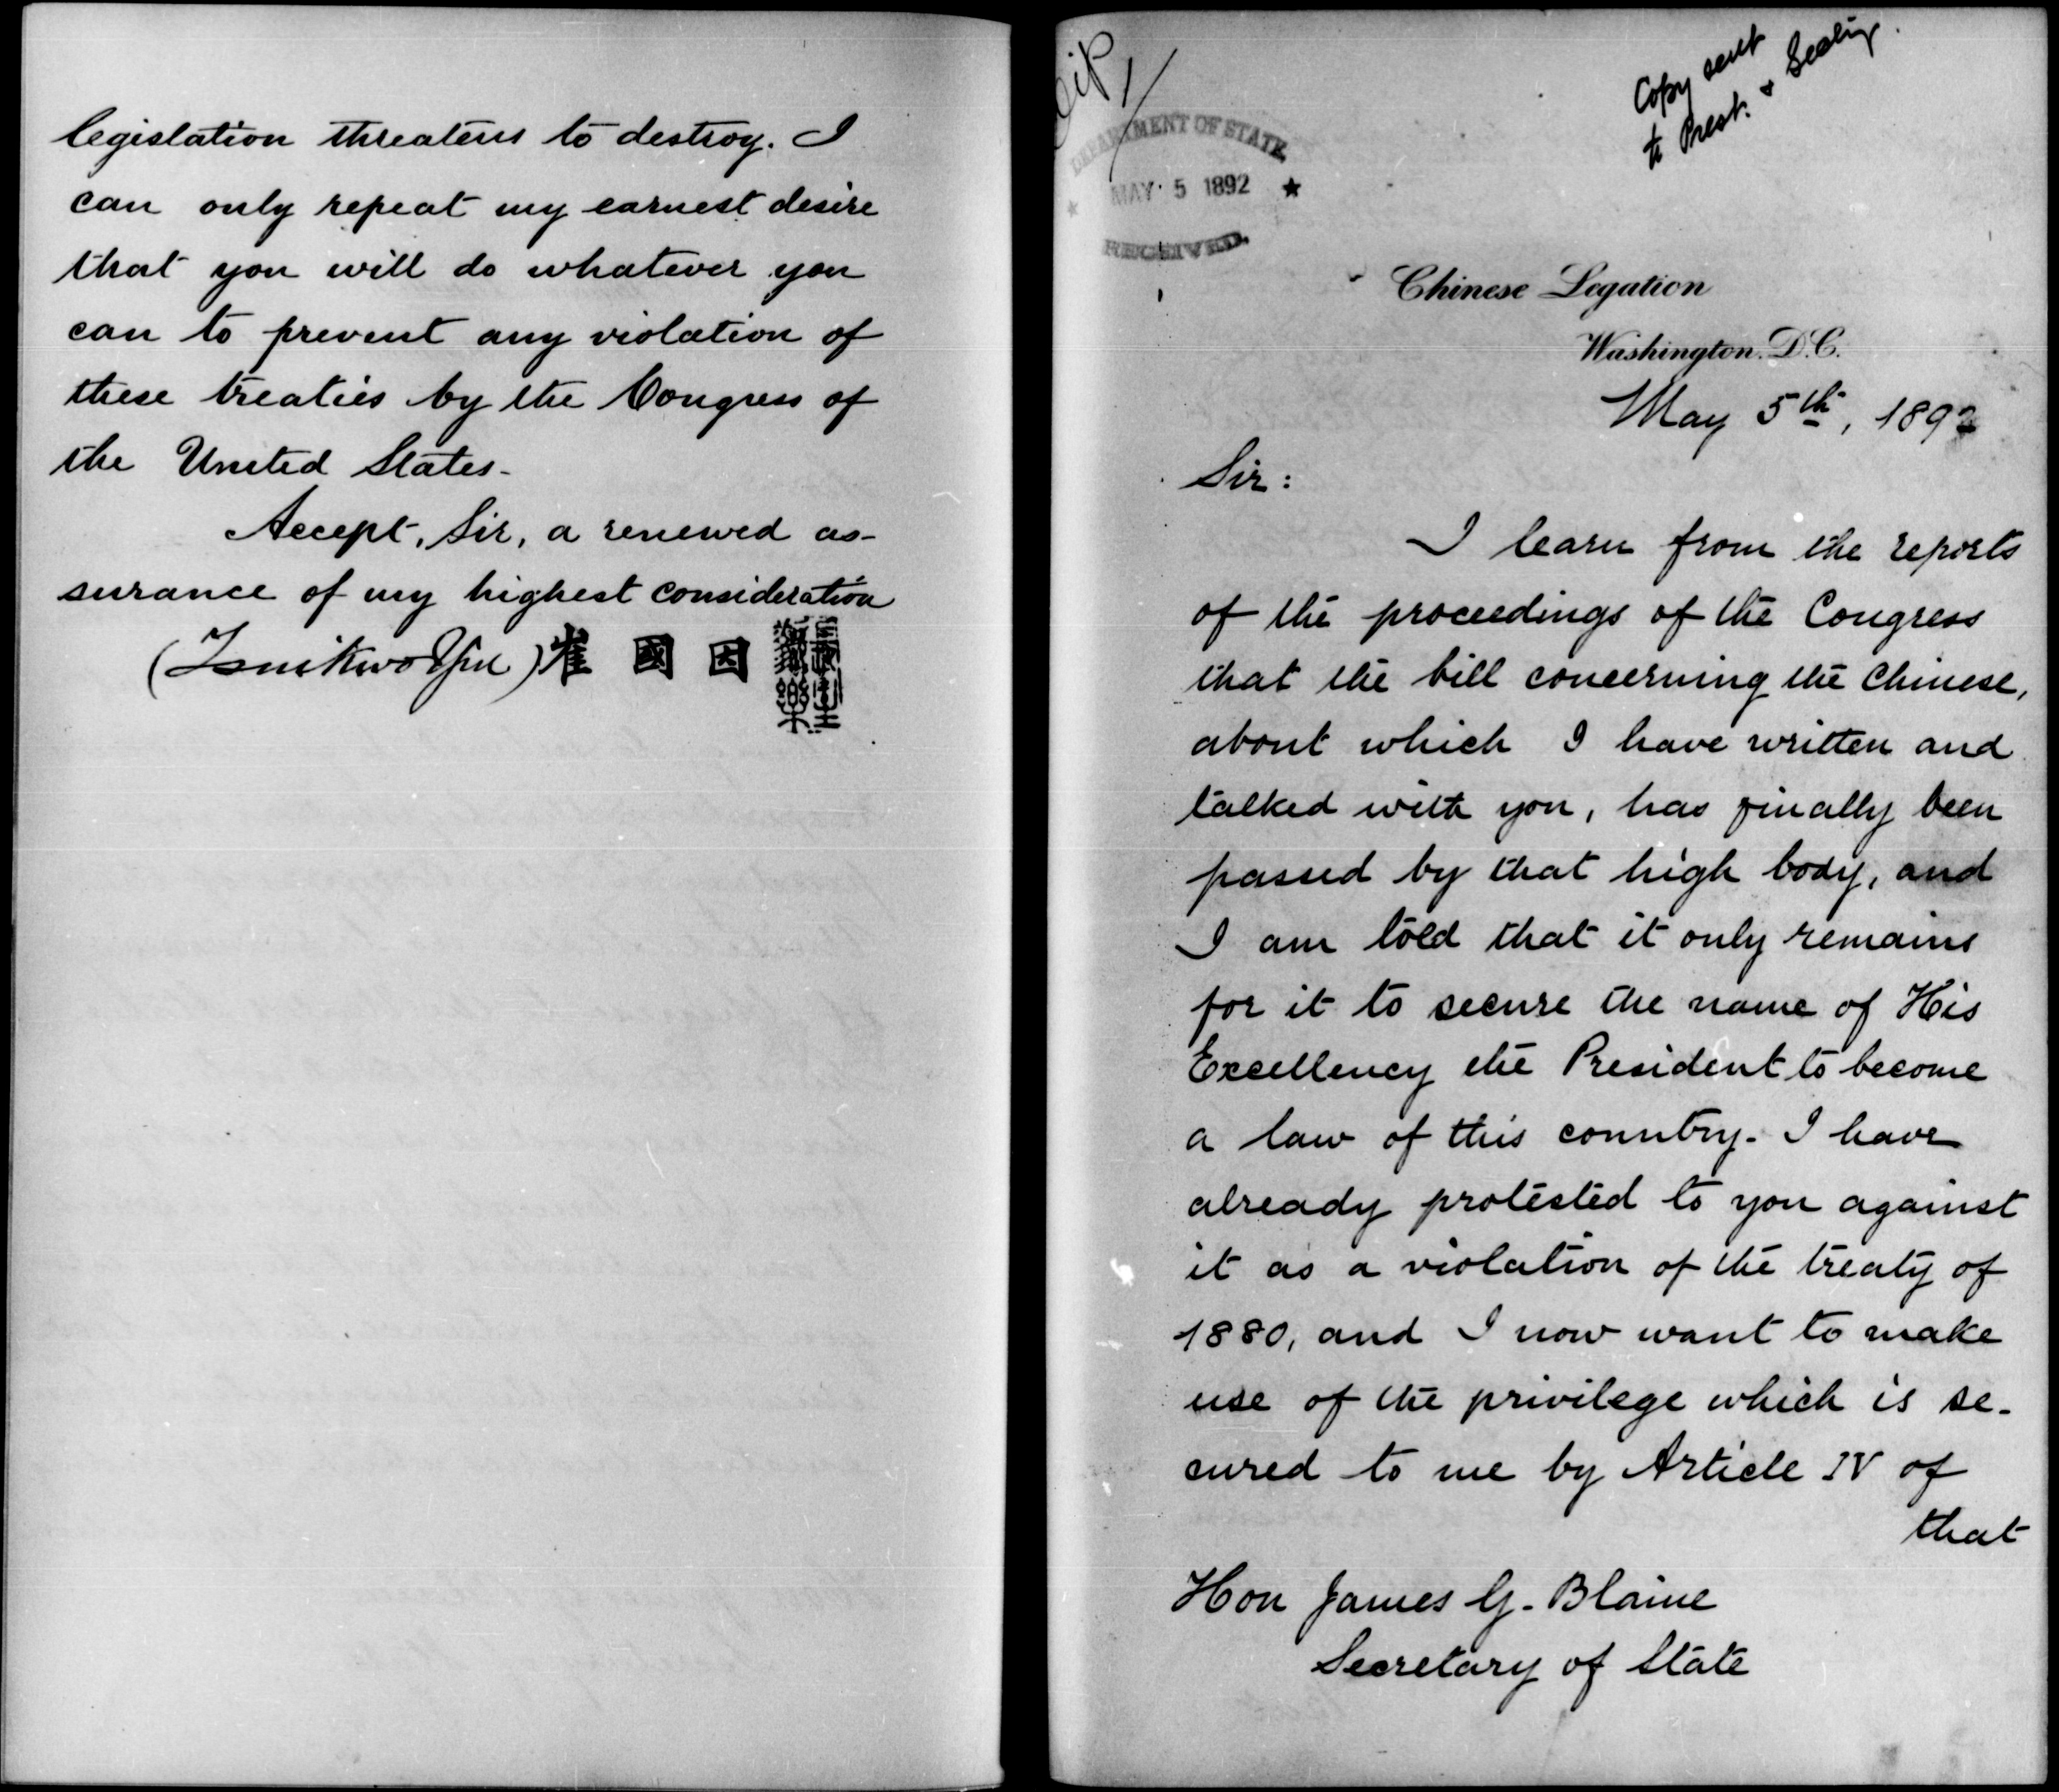 legislation threatens to destroy. I
can only repeat my earnest desire
that you will do whatever you
can to prevent any violation of
these treaties by the Congress of
the United States-
Accept, Sir, a renewed as-
surance of my highest consideration
(Tsui Kwo Yin) 崔 國 因
Copy sent
to Prest. &
DEPARTMENT OF STATE
MAY 5 1892
RECEIVED.
Chinese Legation
Washington. D.C.
May 5th, 1892
Sir:
I learn from the reports
of the proceedings of the Congress
that the bill concerning the Chinese,
about which I have written and
talked with you, has finally been
passed by that high body, and
I am told that it only remains
for it to secure the name of His
Excellency the President to become
a law of this country. I have
already protested to you against
it as a violation of the treaty of
1880, and I now want to make
use of the privilege which is se-
cured to me by Article IV of
that
Hon James G. Blaine
Secretary of State